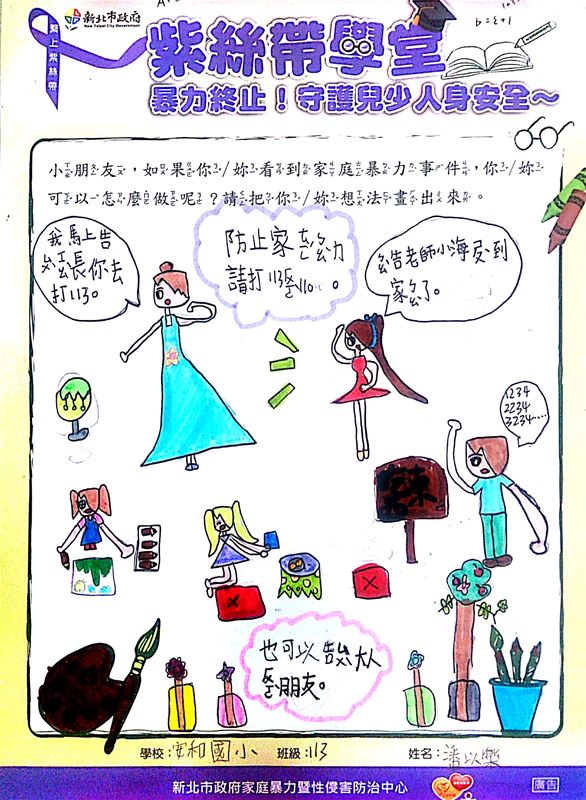 新北市政府
New Taipei City Government
繫上紫絲帶
b=ε+1
紫絲帶學堂
暴力終止！守護兒少人身安全～
小朋友，如果你/妳看到家庭暴力事件，你/妳
可以怎麼做呢？請把你/妳想法畫出來。
我馬上告
ㄙㄨˋ長你去
打113。
防止家ㄅㄠˋ力
請打113或110。
告老師小海受到
家ㄅㄠˋ了。
1234
2234
3234……
也可以告ㄙㄨˋ大人
或朋友。
學校：安和國小 班級：113 姓名：潘以樂
新北市政府家庭暴力暨性侵害防治中心
廣告